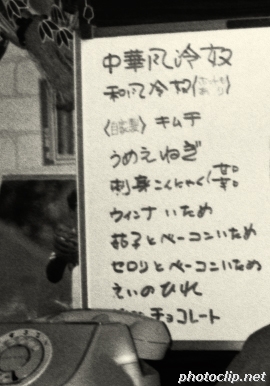 中華風冷奴
和風冷奴(ホットもあり)
〈自家製〉キムチ
うめえねぎ
刺身こんにゃく(辛辛)
ウィンナいため
茄子とベーコンいため
セロリとベーコンいため
えいのひれ
チョコレート
photoclip.net